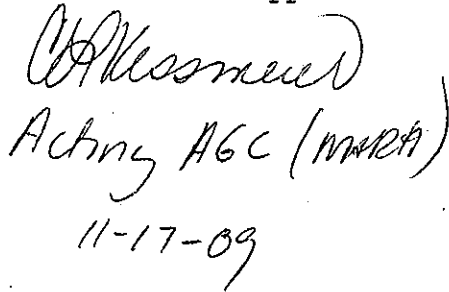 Acting AGC (M&RA)
11-17-09